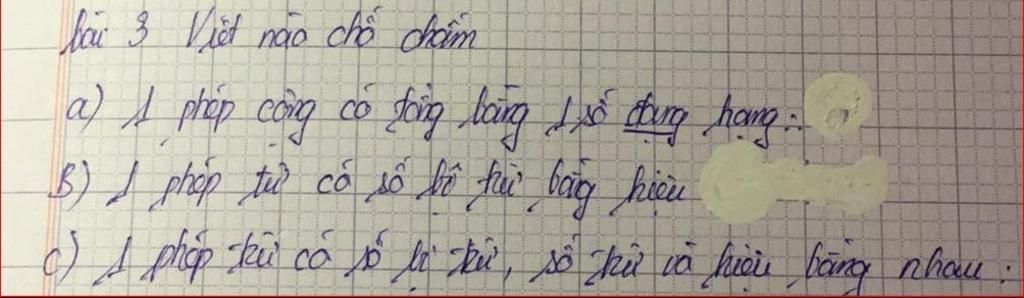 bài 3 Viết nào chỗ chấm
a) 1 phép cộng có tổng bằng 1 số dạng hạng :
B) 1 phép từ có số bị trừ bằng hiệu
c) 1 phép trừ có số bị trừ, số trừ và hiệu bằng nhau :